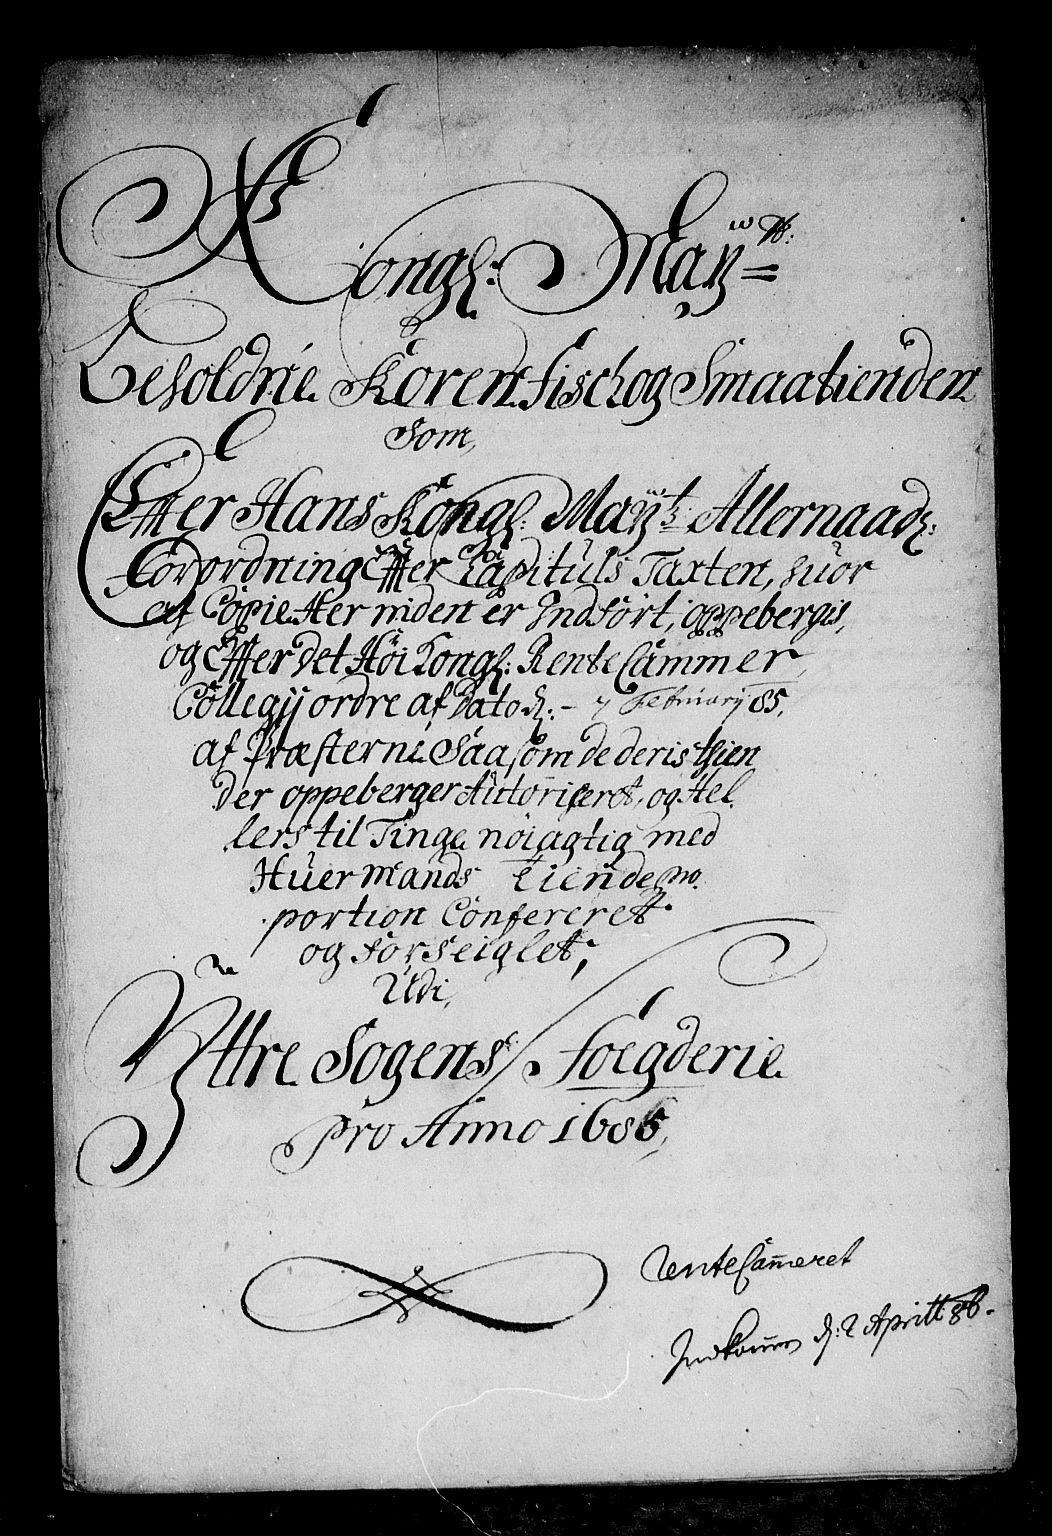 Kongl: May=
Beholdne Koren fisch og Smaatienden
Som,
Effter Hans Kongl: Mayts: Allernaad:
Forordning Effter Capituls Taxten, huor
af Copie Her niden er Indført, oppebergis,
og Effter det Høi Kongl: RenteCammer
Collegij ordre af Dato d: - 7 Februarij 85,
af Præsterne Saasom de deris thien
der oppeberger Autoriseret, og Hel
lers til Tinge nøiagtig med
Huermands Tiende pro
portion Confereret
og forseiglet;
Udi,
Yttre Sogens Foegderie
pro Anno 1685,
RenteCammeret
Indkom d: 2 Aprill 86.